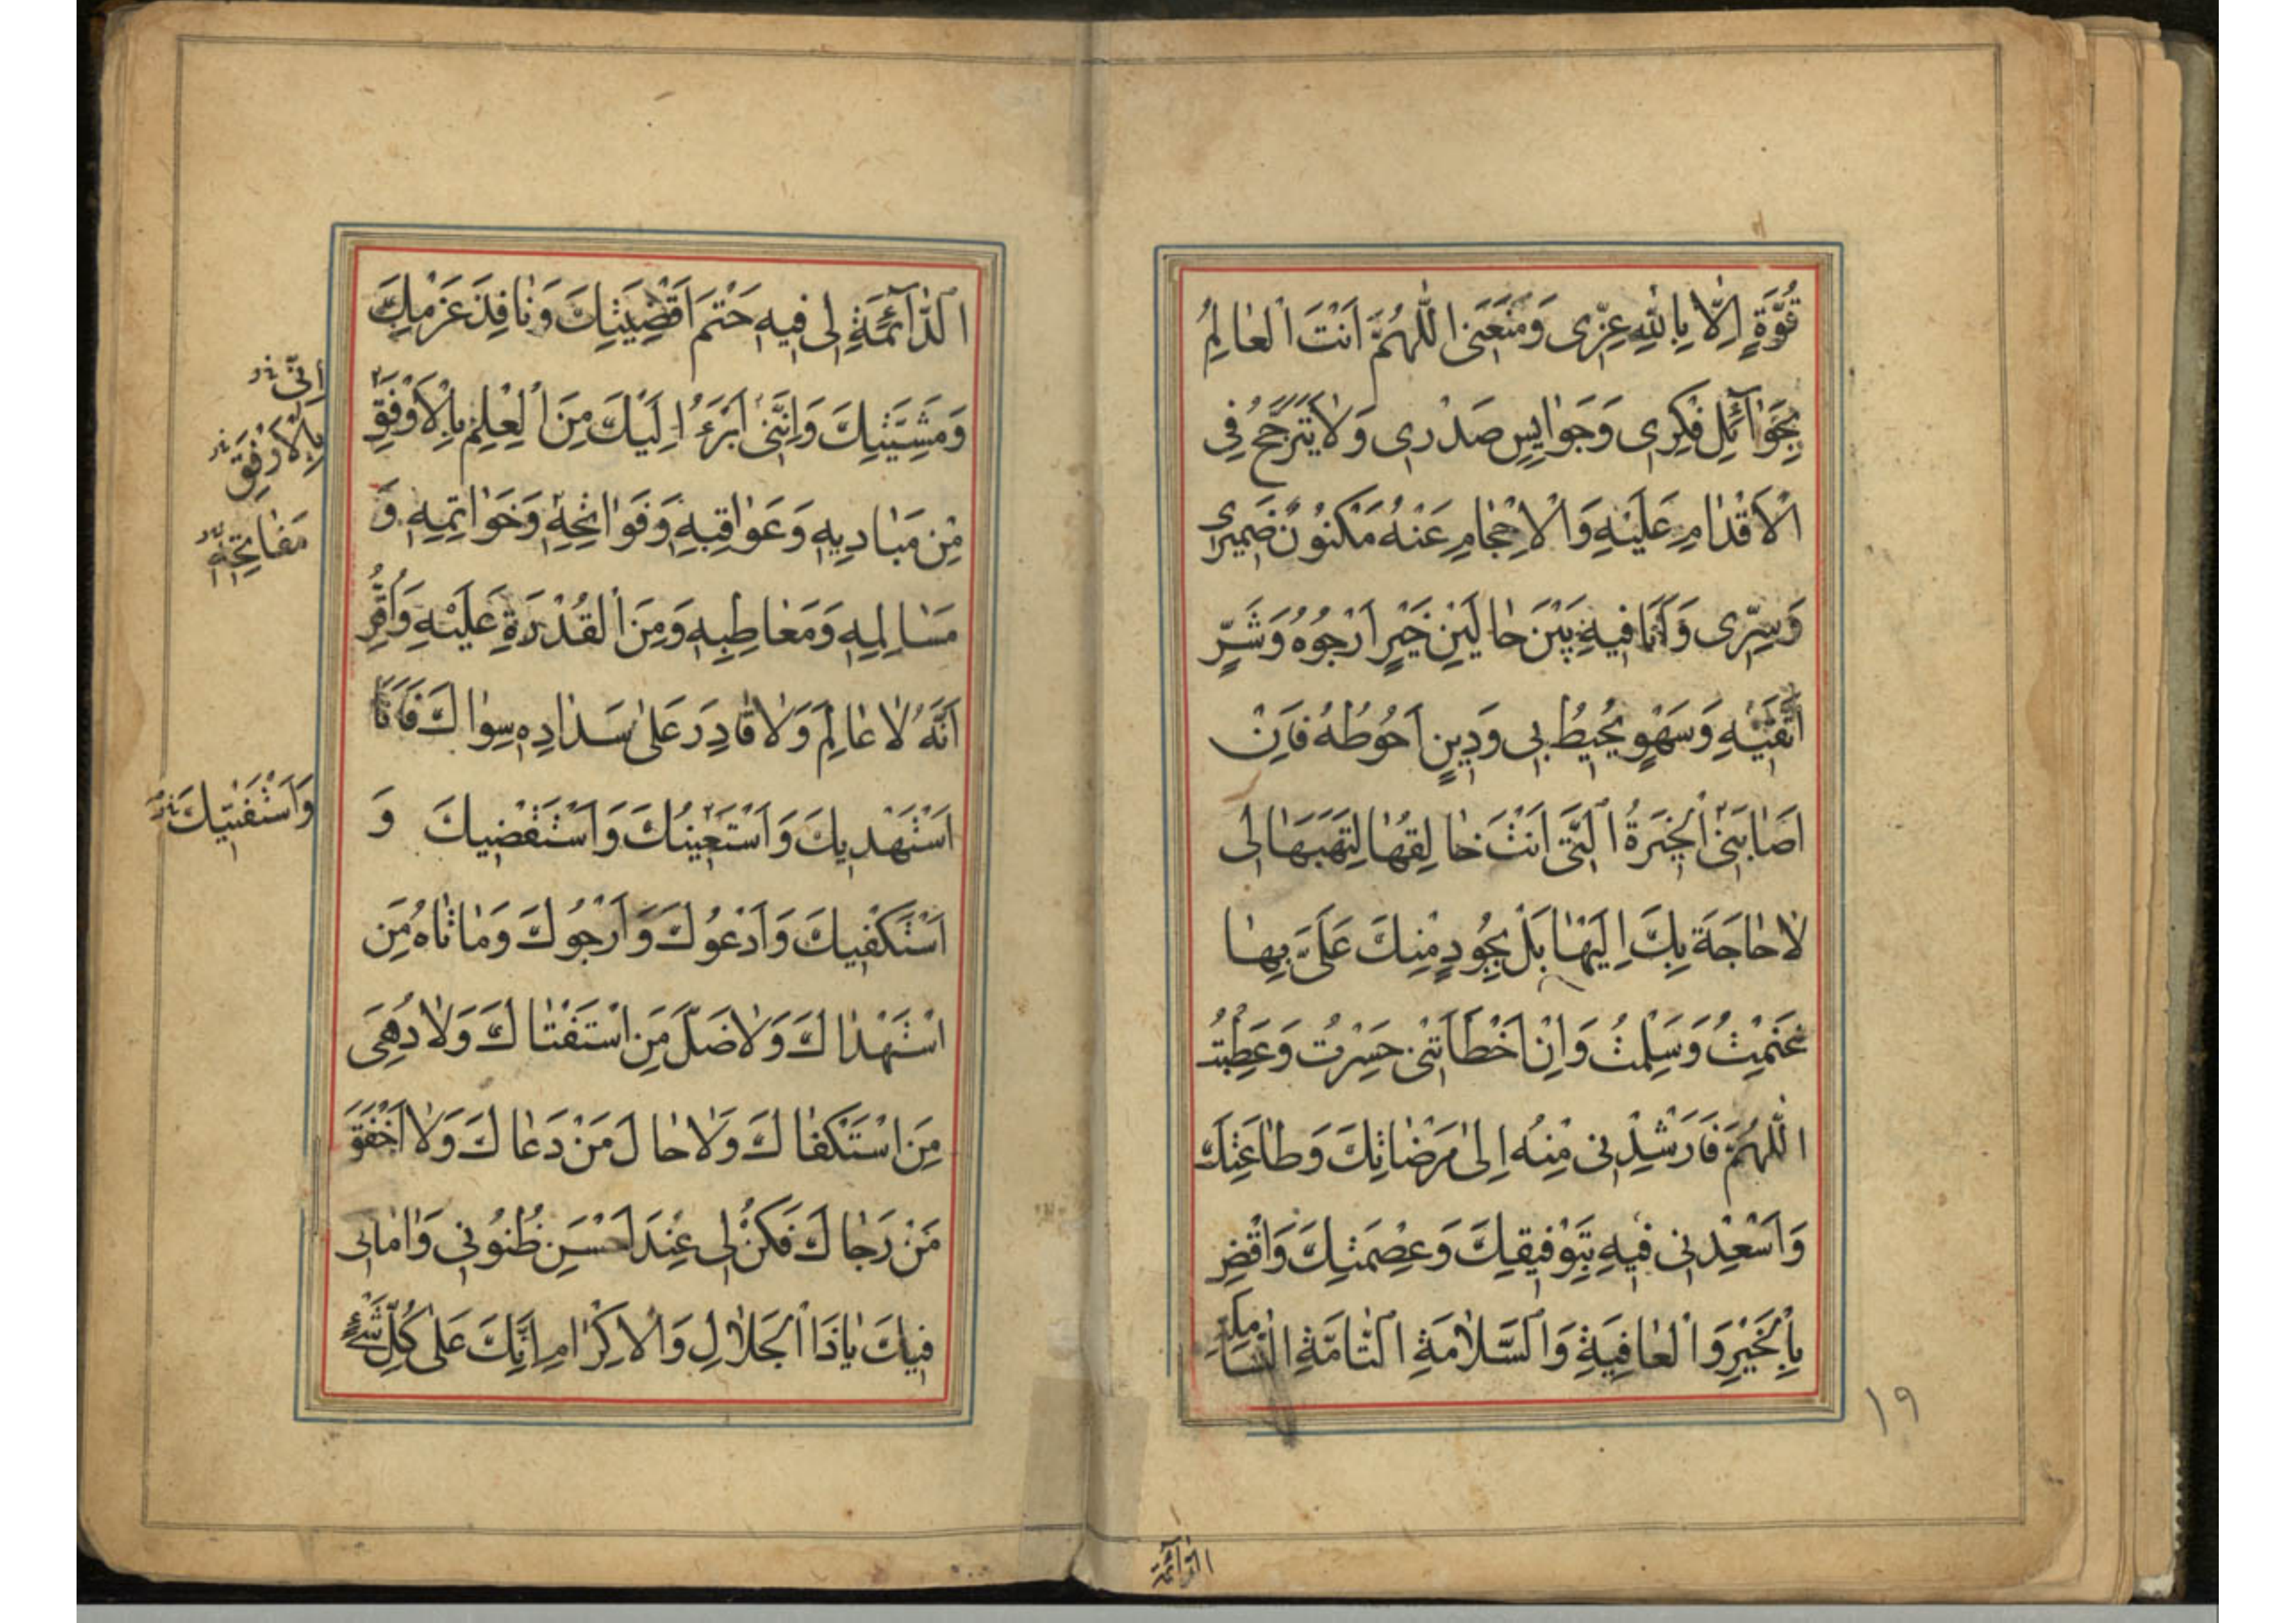 قُوَّةٍ اِلّا بِاللهِ عِزّى وَمَنَعَتى اَللّهُمَّ اَنْتَ الْعالِمُ
بِجَوآئِلِ فِكْرى وَجَوايِسِ صَدْرى وَلا يَتَرَجَّحُ فِى
الْاَقْدامِ عَلَيْهِ وَالْاِحْجامِ عَنْهُ مَكْنُونُ ضَميرى
وَسِرّى وَاَنَا فيهِ بَيْنَ حالَيْنِ خَيْرٍ اَرْجُوهُ وَشَرٍّ
اَتَّقيْهِ وَسَهْوٍ يُحيطُ بى وَدينٍ اَحُوطُهُ فَاِنْ
اَصابَتْنِى الْخِيَرَةُ الَّتى اَنْتَ خالِقُها لِتَهَبَها لى
لا حاجَةَ بِكَ اِلَيْها بَلْ بِجُودٍ مِنْكَ عَلَىَّ بِها
غَنِمْتُ وَسَلِمْتُ وَاِنْ اَخْطَأَتْنى حَسِرْتُ وَعَطِبْتُ
اَللّهُمَّ فَاَرْشِدْنى مِنْهُ اِلى مَرْضاتِكَ وَطاعَتِكَ
وَاَسْعِدْنى فيهِ بِتَوْفيقِكَ وَعِصْمَتِكَ وَاقْضِ
بِالْخَيْرِ وَالْعافِيَةِ وَالسَّلامَةِ التّامَّةِ الشّامِلَةِ
١٩
الدّآئمة
اَلدّآئِمَةِ لى فيهِ حَتْمَ اَقْضِيَتِكَ وَنافِذَ عَزْمِكَ
وَمَشِيَّتِكَ وَاِنَّنى اَبْرَءُ اِلَيْكَ مِنَ الْعِلْمِ بِالْاَوْفَقِ
مِنْ مَباديهِ وَعَواقِبِهِ وَفَواتِحِهِ وَخَواتِمِهِ وَ
مَسالِمِهِ وَمَعاطِبِهِ وَمِنَ الْقُدْرَةِ عَلَيْهِ وَاُقِرُّ
اَنَّهُ لا عالِمَ وَلا قادِرَ عَلى سَدادِهِ سِواكَ فَاَنَا
اَسْتَهْديكَ وَاَسْتَعينُكَ وَاَسْتَقْضيكَ وَ
اَسْتَكْفيكَ وَاَدْعُوكَ وَاَرْجُوكَ وَما تاهَ مَنِ
اسْتَهْداكَ وَلا ضَلَّ مَنِ اسْتَفْتاكَ وَلا دُهِىَ
مَنِ اسْتَكْفاكَ وَلا حالَ مَنْ دَعاكَ وَلا اَخْفَقَ
مَنْ رَجاكَ فَكُنْ لى عِنْدَ اَحْسَنِ ظُنُونى وَامالى
فيكَ ياذَا الْجَلالِ وَالْاِكْرامِ اِنَّكَ عَلى كُلِّ شَىْءٍ
اِنّى
بِالْاَرْفَقِ
مَفاتِحِهِ
وَاَسْتَفْتيكَ